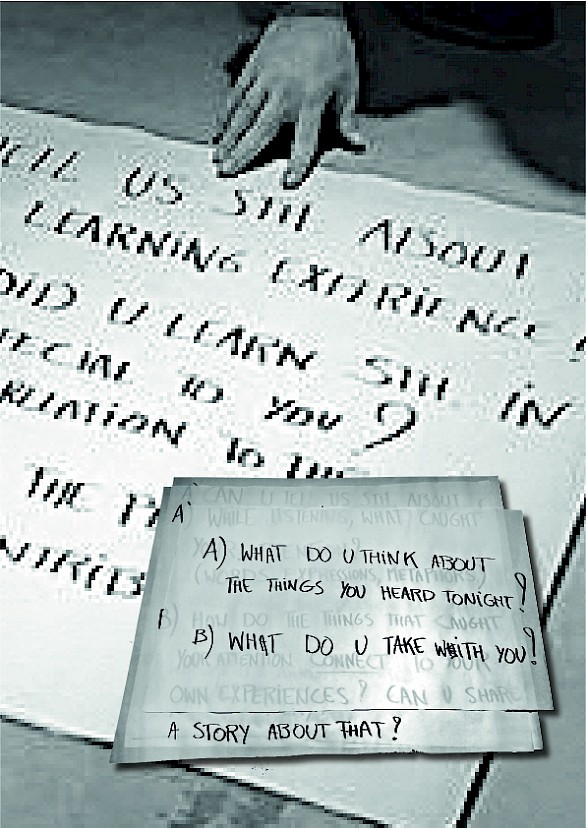 US STH ABOUT
LEARNING EXPERIENCE!
DID U LEARN STH IN
TO YOU?
RELATION TO THE
THE
A' CAN U TELL US STH. ABOUT
A'
WHILE LISTENING, WHAT CAUGHT
A) WHAT DO U THINK ABOUT
(WORDS, EXPRESSIONS, METAPHORS)
THE THINGS YOU HEARD TONIGHT?
B) HOW DO THE THINGS THAT CAUGHT
B) WHAT DO U TAKE WITH YOU?
YOUR ATTENTION CONNECT TO YOUR
OWN EXPERIENCES? CAN U SHARE
A STORY ABOUT THAT?